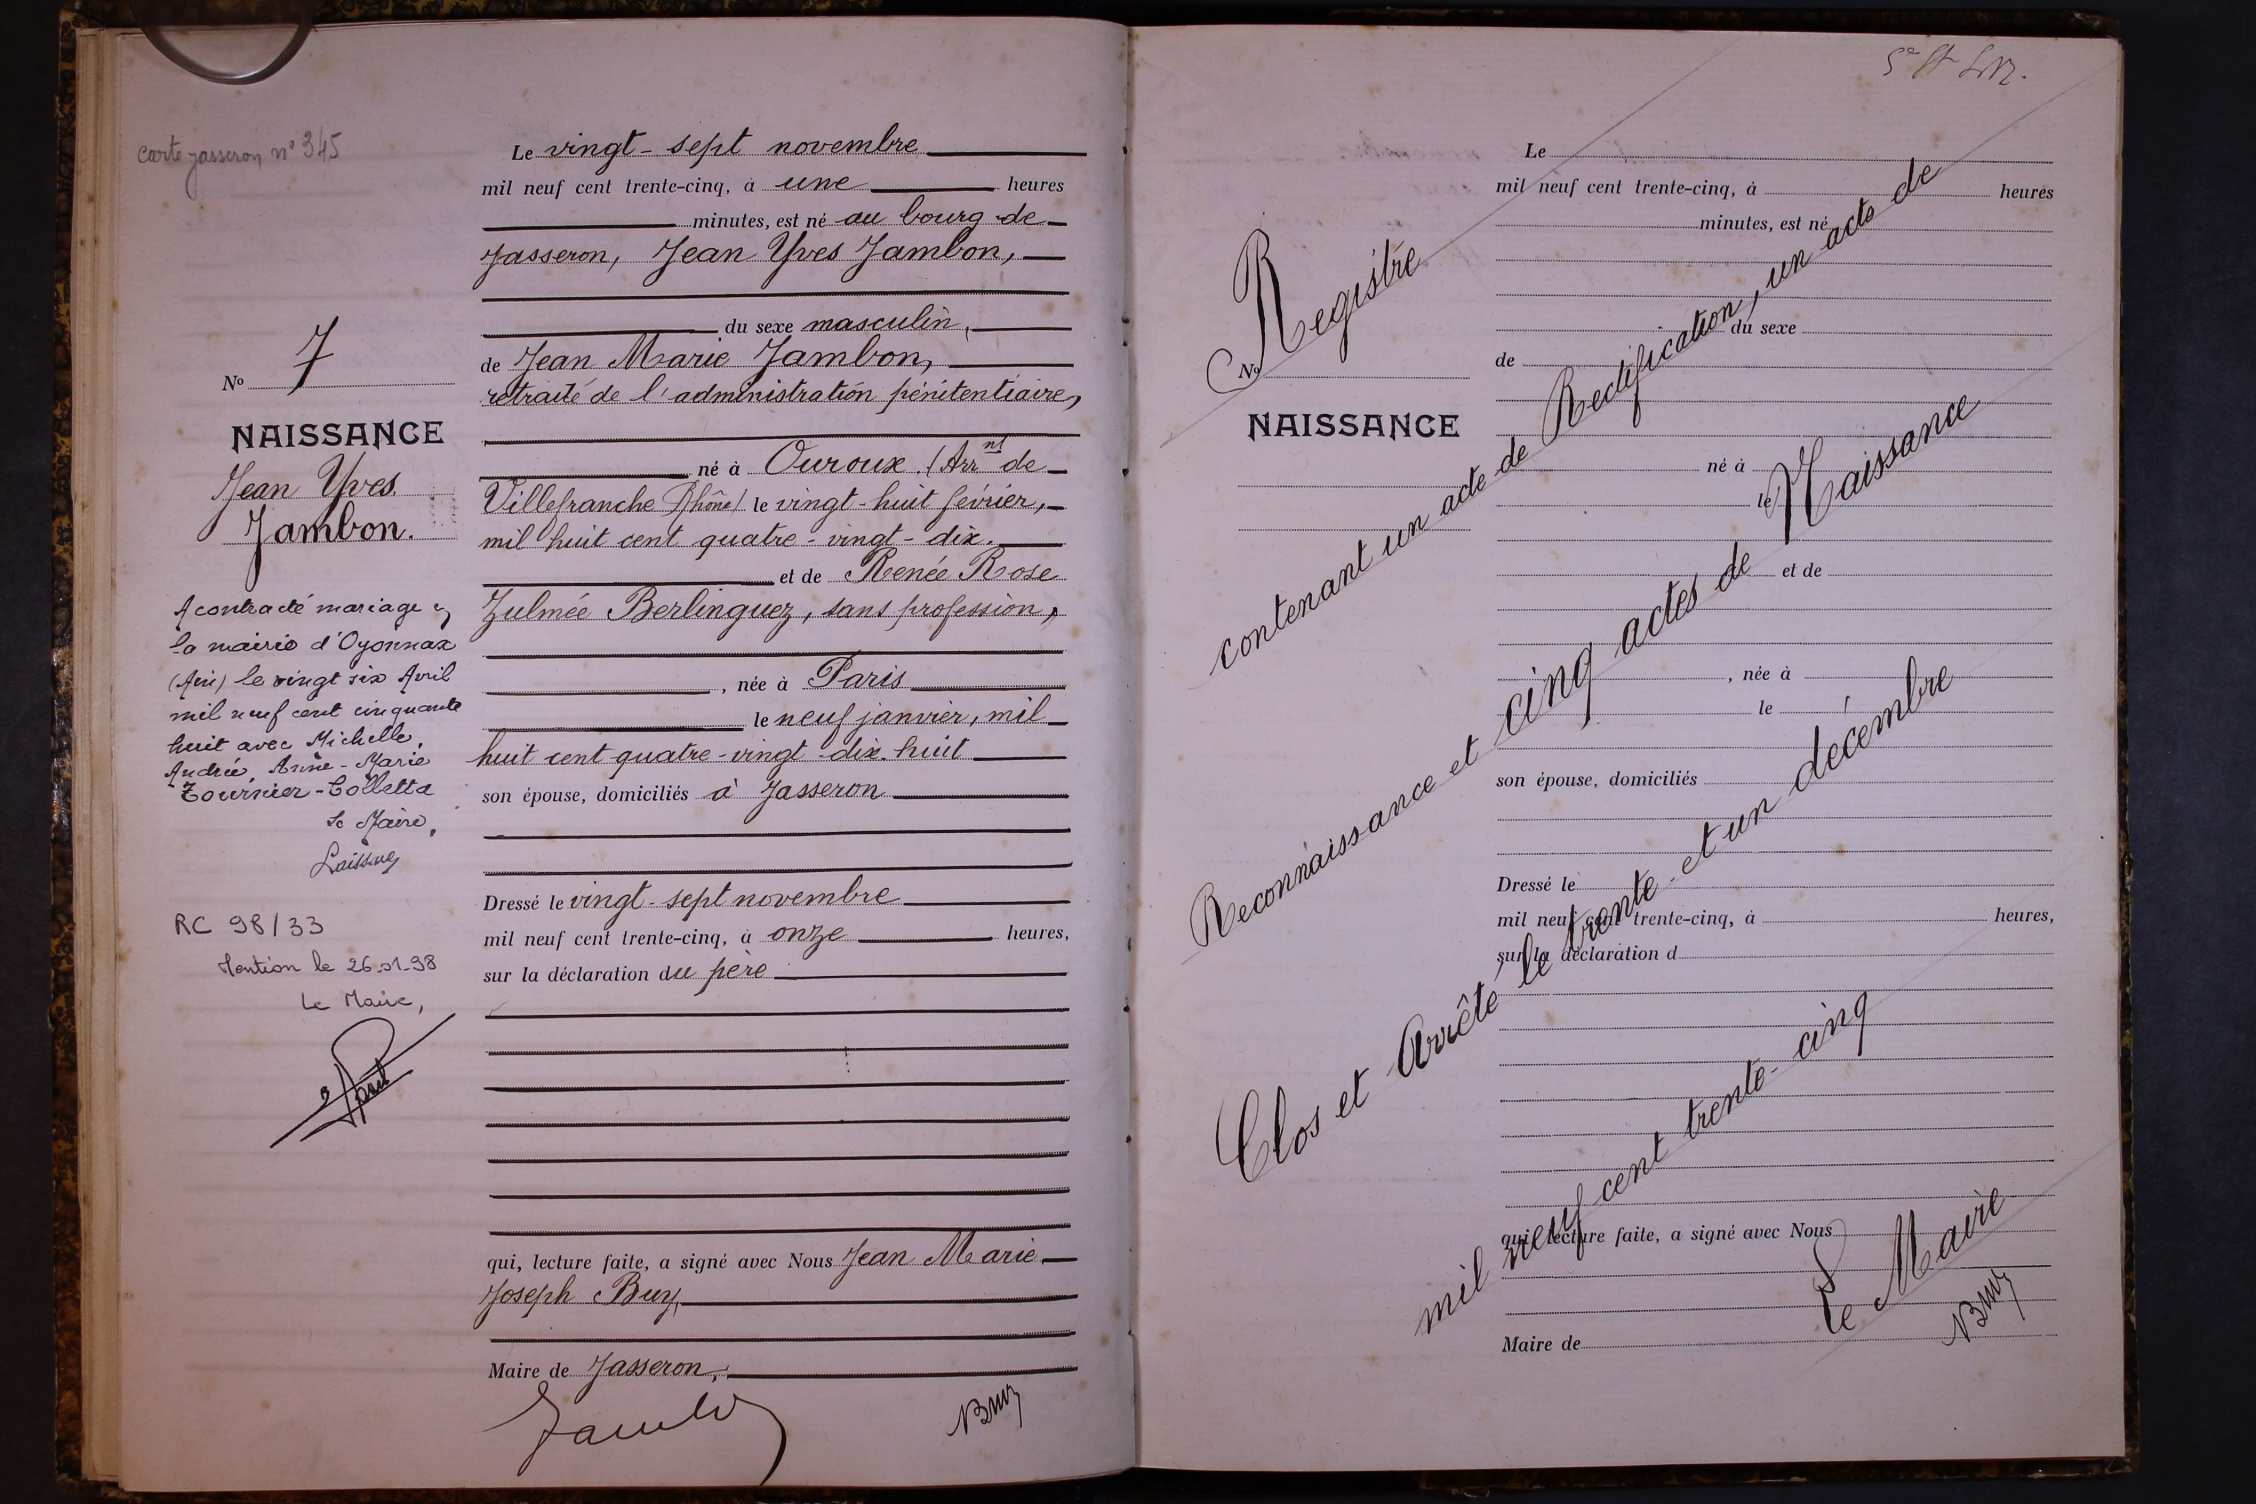 carte jasseron n° 345
N° 7
NAISSANCE
Jean Yves
Jambon.
A contracté mariage à
la mairie d'Oyonnax
(Ain) le vingt six Avril
mil neuf cent cinquante
huit avec Michelle,
Andrée, Anne-Marie
Tournier-Colletta
Le Maire,
RC 98/33
Mention le 26-01-98
Le Maire,
Le vingt-sept novembre
mil neuf cent trente-cinq, à une heures
minutes, est né au bourg de
Jasseron, Jean Yves Jambon,
du sexe masculin,
de Jean Marie Jambon,
retraité de l'administration pénitentiaire,
né à Ouroux (Arrnt de
Villefranche Rhône) le vingt-huit février,
mil huit cent quatre-vingt-dix.
et de Renée Rose
Zulmée Berlinguez, sans profession,
, née à Paris
le neuf janvier, mil
huit cent quatre-vingt-dix-huit
son épouse, domiciliés à Jasseron
Dressé le vingt-sept novembre
mil neuf cent trente-cinq, à onze heures,
sur la déclaration du père
qui, lecture faite, a signé avec Nous Jean Marie
Joseph Buy,
Maire de Jasseron,
Jambon
Buy
N°
NAISSANCE
Le
mil neuf cent trente-cinq, à heures
minutes, est né
du sexe
de
né à
le
et de
, née à
le
son épouse, domiciliés
Dressé le
mil neuf cent trente-cinq, à heures,
sur la déclaration d
qui, lecture faite, a signé avec Nous
Maire de
Registre
contenant un acte de Rectification, un acte de
Reconnaissance et cinq actes de Naissance
Clos et Arrêté le trente-et un décembre
mil neuf cent trente-cinq
Le Maire
Buy